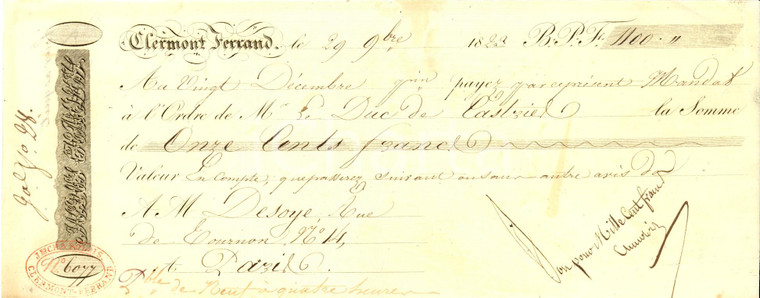 Clermont Ferrand. le 29 9bre 1823 B.P.F. 1100 "
Au Vingt Décembre pin payez par ce présent Mandat
à l'Ordre de Mr Le Duc de Castries la Somme
de Onze Cents francs
Valeur En Compte, que passerez suivant ou sans autre avis de
A M Desoye, Rue
de Tournon No 14,
à Paris
de Neuf à quatre heures
Bon pour Mille Cent francs
CLERMONT-FERRAND
No 6077